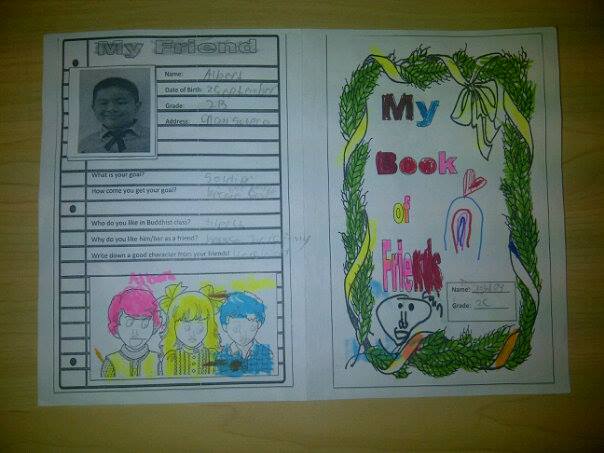 My Friend
Name: Albert
Date of Birth: 2 September
Grade: 2B
Address:
What is your goal? Soldier
How come you get your goal?
Who do you like in Buddhist class?
Why do you like him/her as a friend?
Write down a good character from your friends!
Albert
My
Book
of
Friends
Name:
Grade: 2C